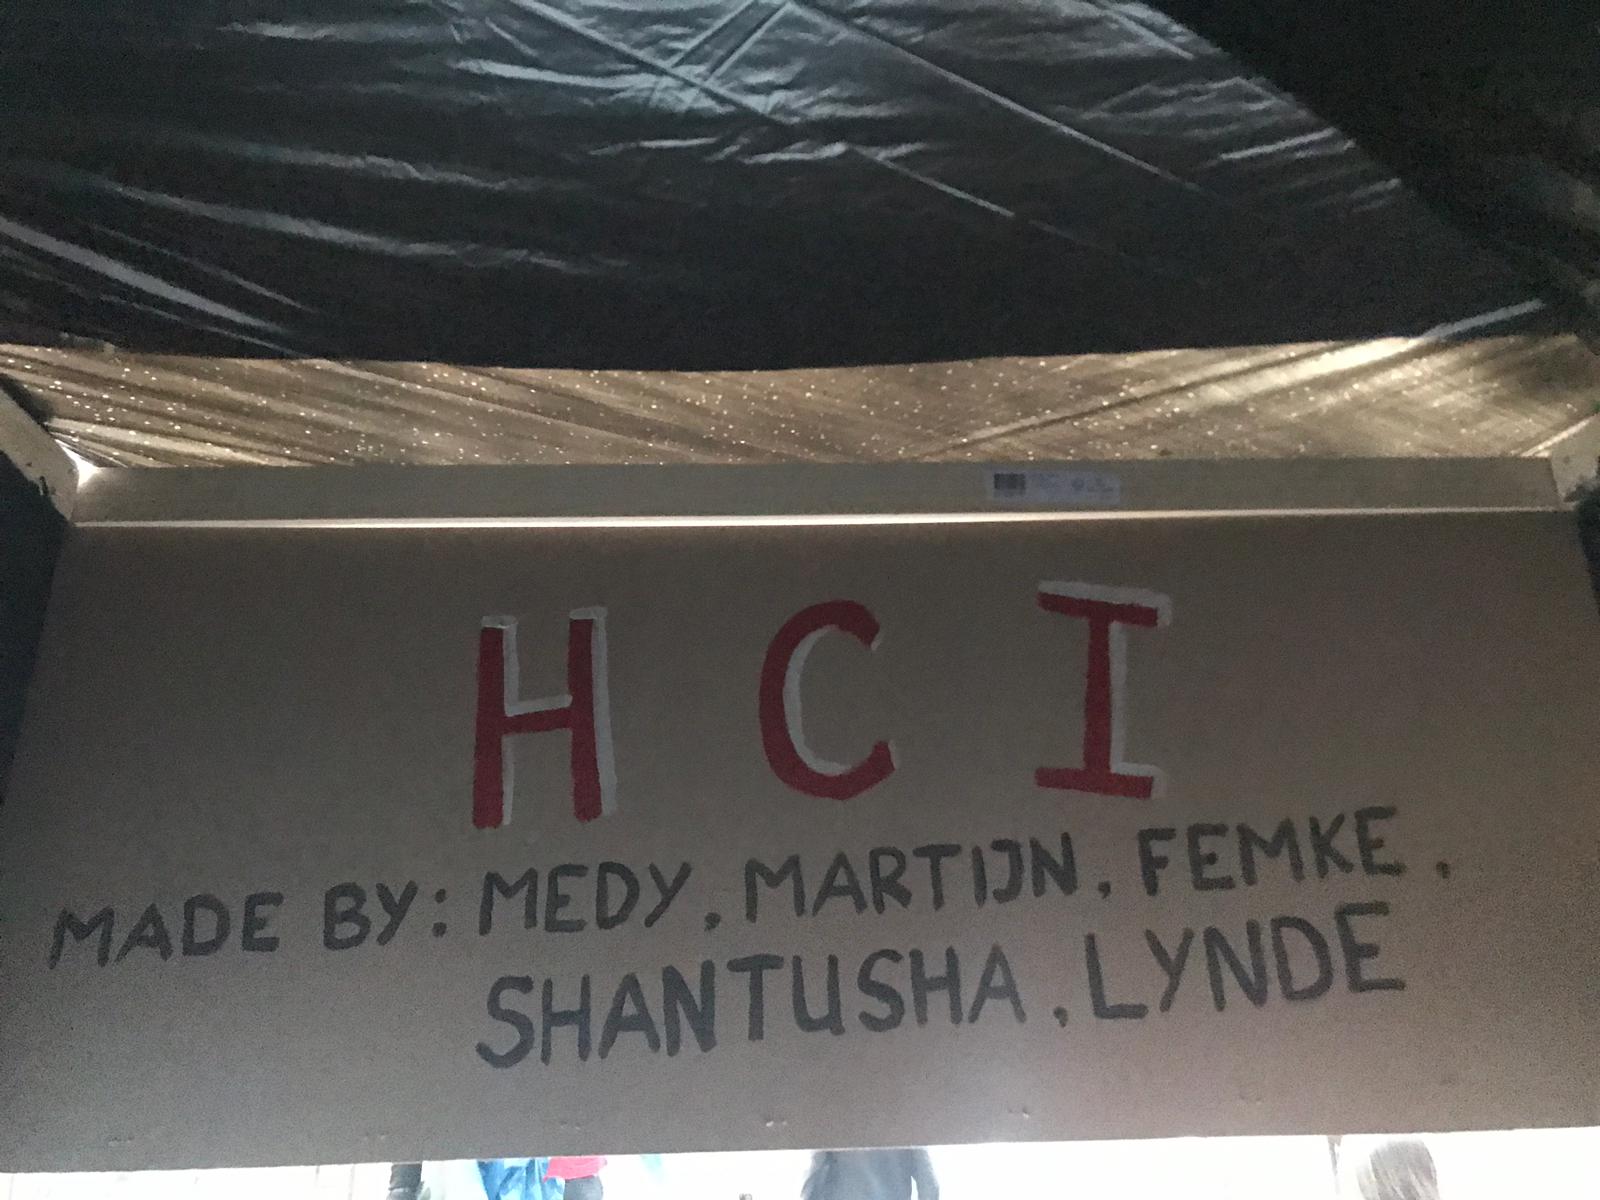 H C I
MADE BY: MEDY, MARTIJN, FEMKE,
SHANTUSHA, LYNDE